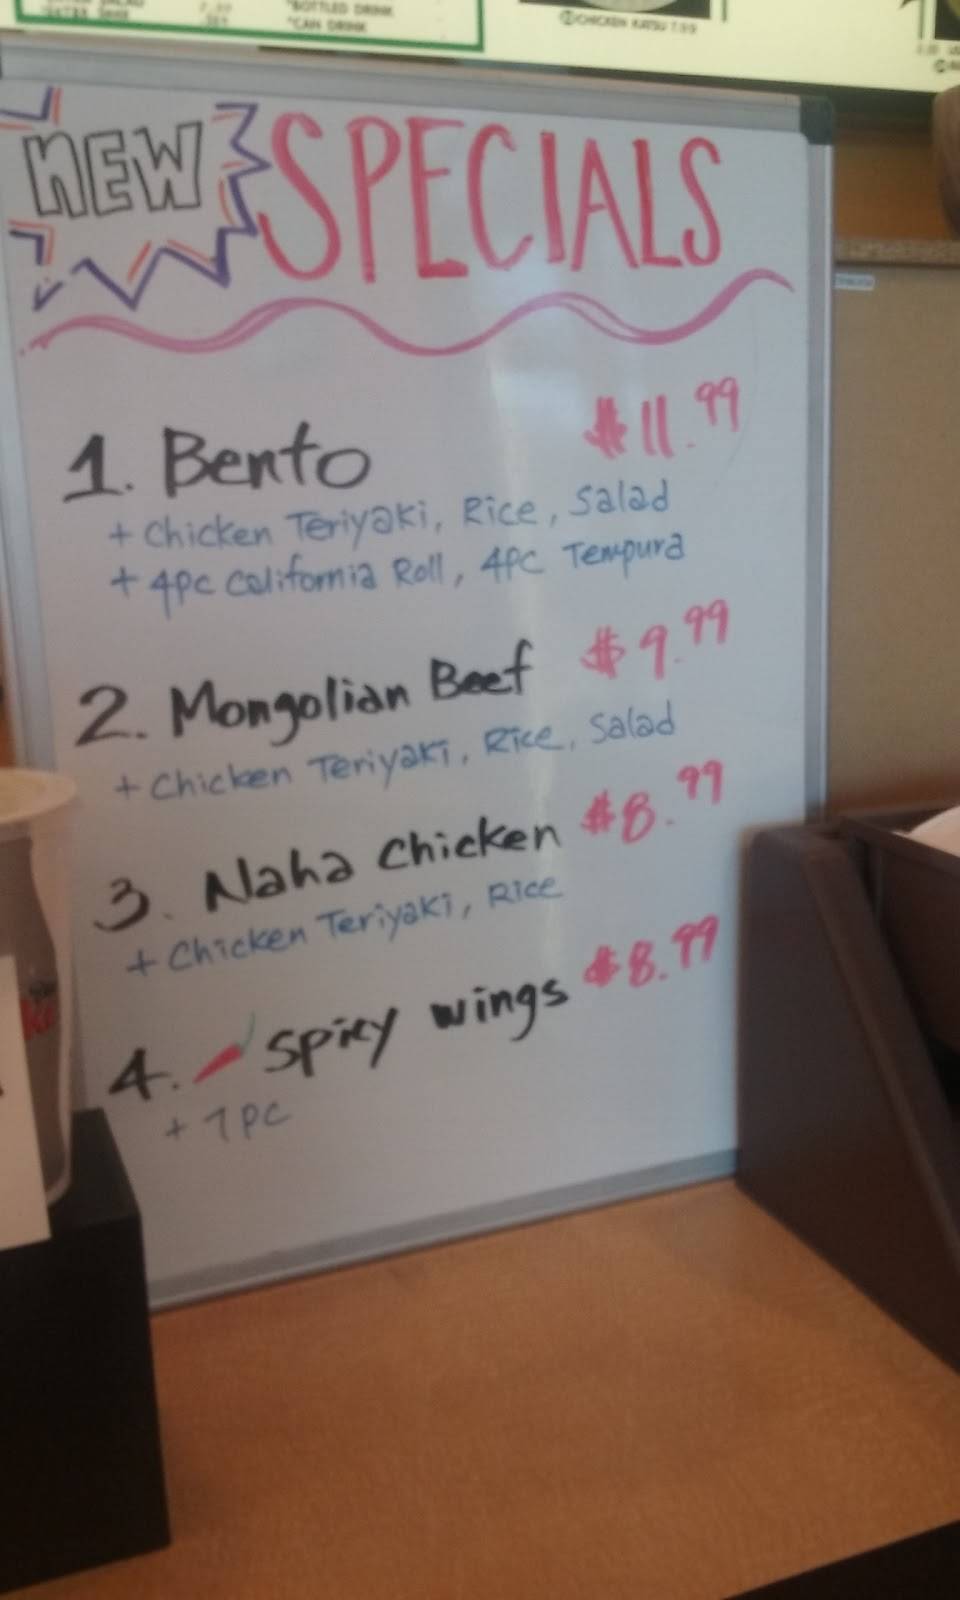 *BOTTLED DRINK
*CAN DRINK
CHICKEN KATSU 7.99
NEW SPECIALS
1. Bento $11.99
+ Chicken Teriyaki, Rice, Salad
+ 4pc California Roll, 4pc Tempura
2. Mongolian Beef $9.99
+ Chicken Teriyaki, Rice, Salad
3. Naha Chicken $8.99
+ Chicken Teriyaki, Rice
4. Spicy wings $8.99
+ 7pc